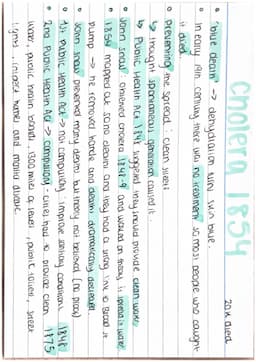 Cholera 1854
20k died
• "blue death" → dehydration turn skin blue
• in early 19th century there was no treatment so most people who caught it died
• preventing the spread: clean streets
↳ thought spontaneous generation caused it.
↳ Public Health Act 1848 suggested they should provide clean water
• John Snow: observed cholera 1848-9 and worked on theory it spread in water
• 1854 mapped out soho deaths and they had a strong link to Broad St pump → he removed handle and deaths dramatically decreased
• John Snow prevented many deaths but theory not believed (no proof)
• 1st Public Health Act → not compulsory: improve sanitary conditions 1848
• 2nd Public Health Act → compulsory: cities had to provide clean 1875
water, public toilets, 1300 miles of sewers, public toilets, street
lights,